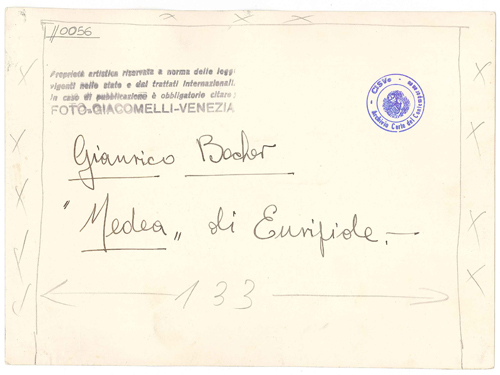 110056
Proprietà artistica riservata a norma delle leggi
vigenti nello stato e dai trattati internazionali.
In caso di pubblicazione è obbligatorio citare:
FOTO-GIACOMELLI-VENEZIA
CISVe
Archivio Carte del
Gianrico Becher
"Medea„ di Euripide.—
133